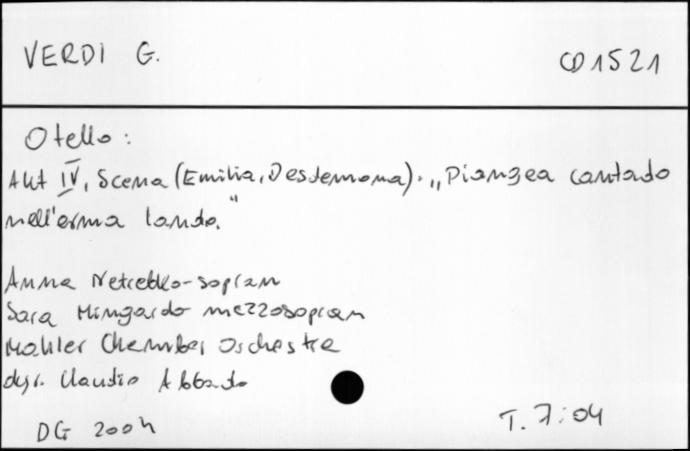 VERDI G.
CD 1521
Otello:
Akt IV, Scena (Emilia, Desdemona). „Piangea cantando
nell'erma landa."
Anna Netrebko - sopran
Sara Mingardo mezzosopran
Mahler Chamber Orchestra
dyr. Claudio Abbado
DG 2004
T. 7:04